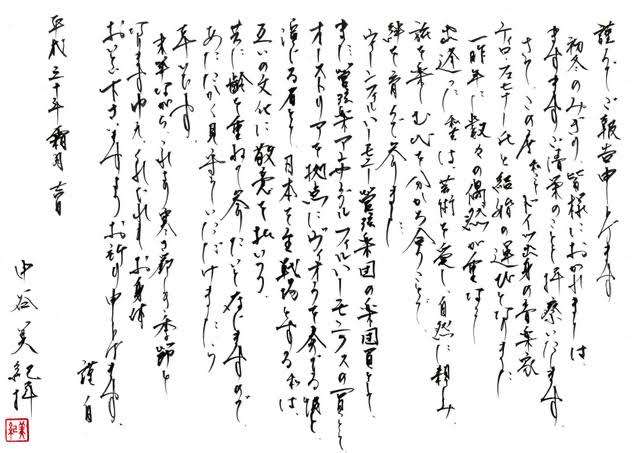 謹んでご報告申し上げます
初冬のみぎり、皆様におかれましては、
ますますご清栄のことと拝察いたします。
さて、この度、私はドイツ出身の音楽家
ティロ・フェヒナー氏と結婚の運びとなりました。
一昨年に数々の偶然が重なり
出逢った私達は、芸術を愛し、自然に親しみ、
旅を楽しむひと時を分かち合うことで、
絆を育んで参りました。
ウィーンフィルハーモニー管弦楽団の楽団員として、
また管弦楽アンサンブルフィルハーモニクスの一員として
オーストリアを拠点にヴィオラを奏でる彼と、
演じる者として日本を主戦場とする私は、
互いの文化に敬意を払いつつ、
共に齢を重ねて参りたいと存じますので、
あたたかく見守っていただけましたら
幸いです。
末筆ながら、これより寒さ厳しき季節と
なりますゆえ、くれぐれもお身体
おいといくださいますようお祈り申し上げます。
謹白
平成三十年霜月吉日
中谷美紀拝
美紀